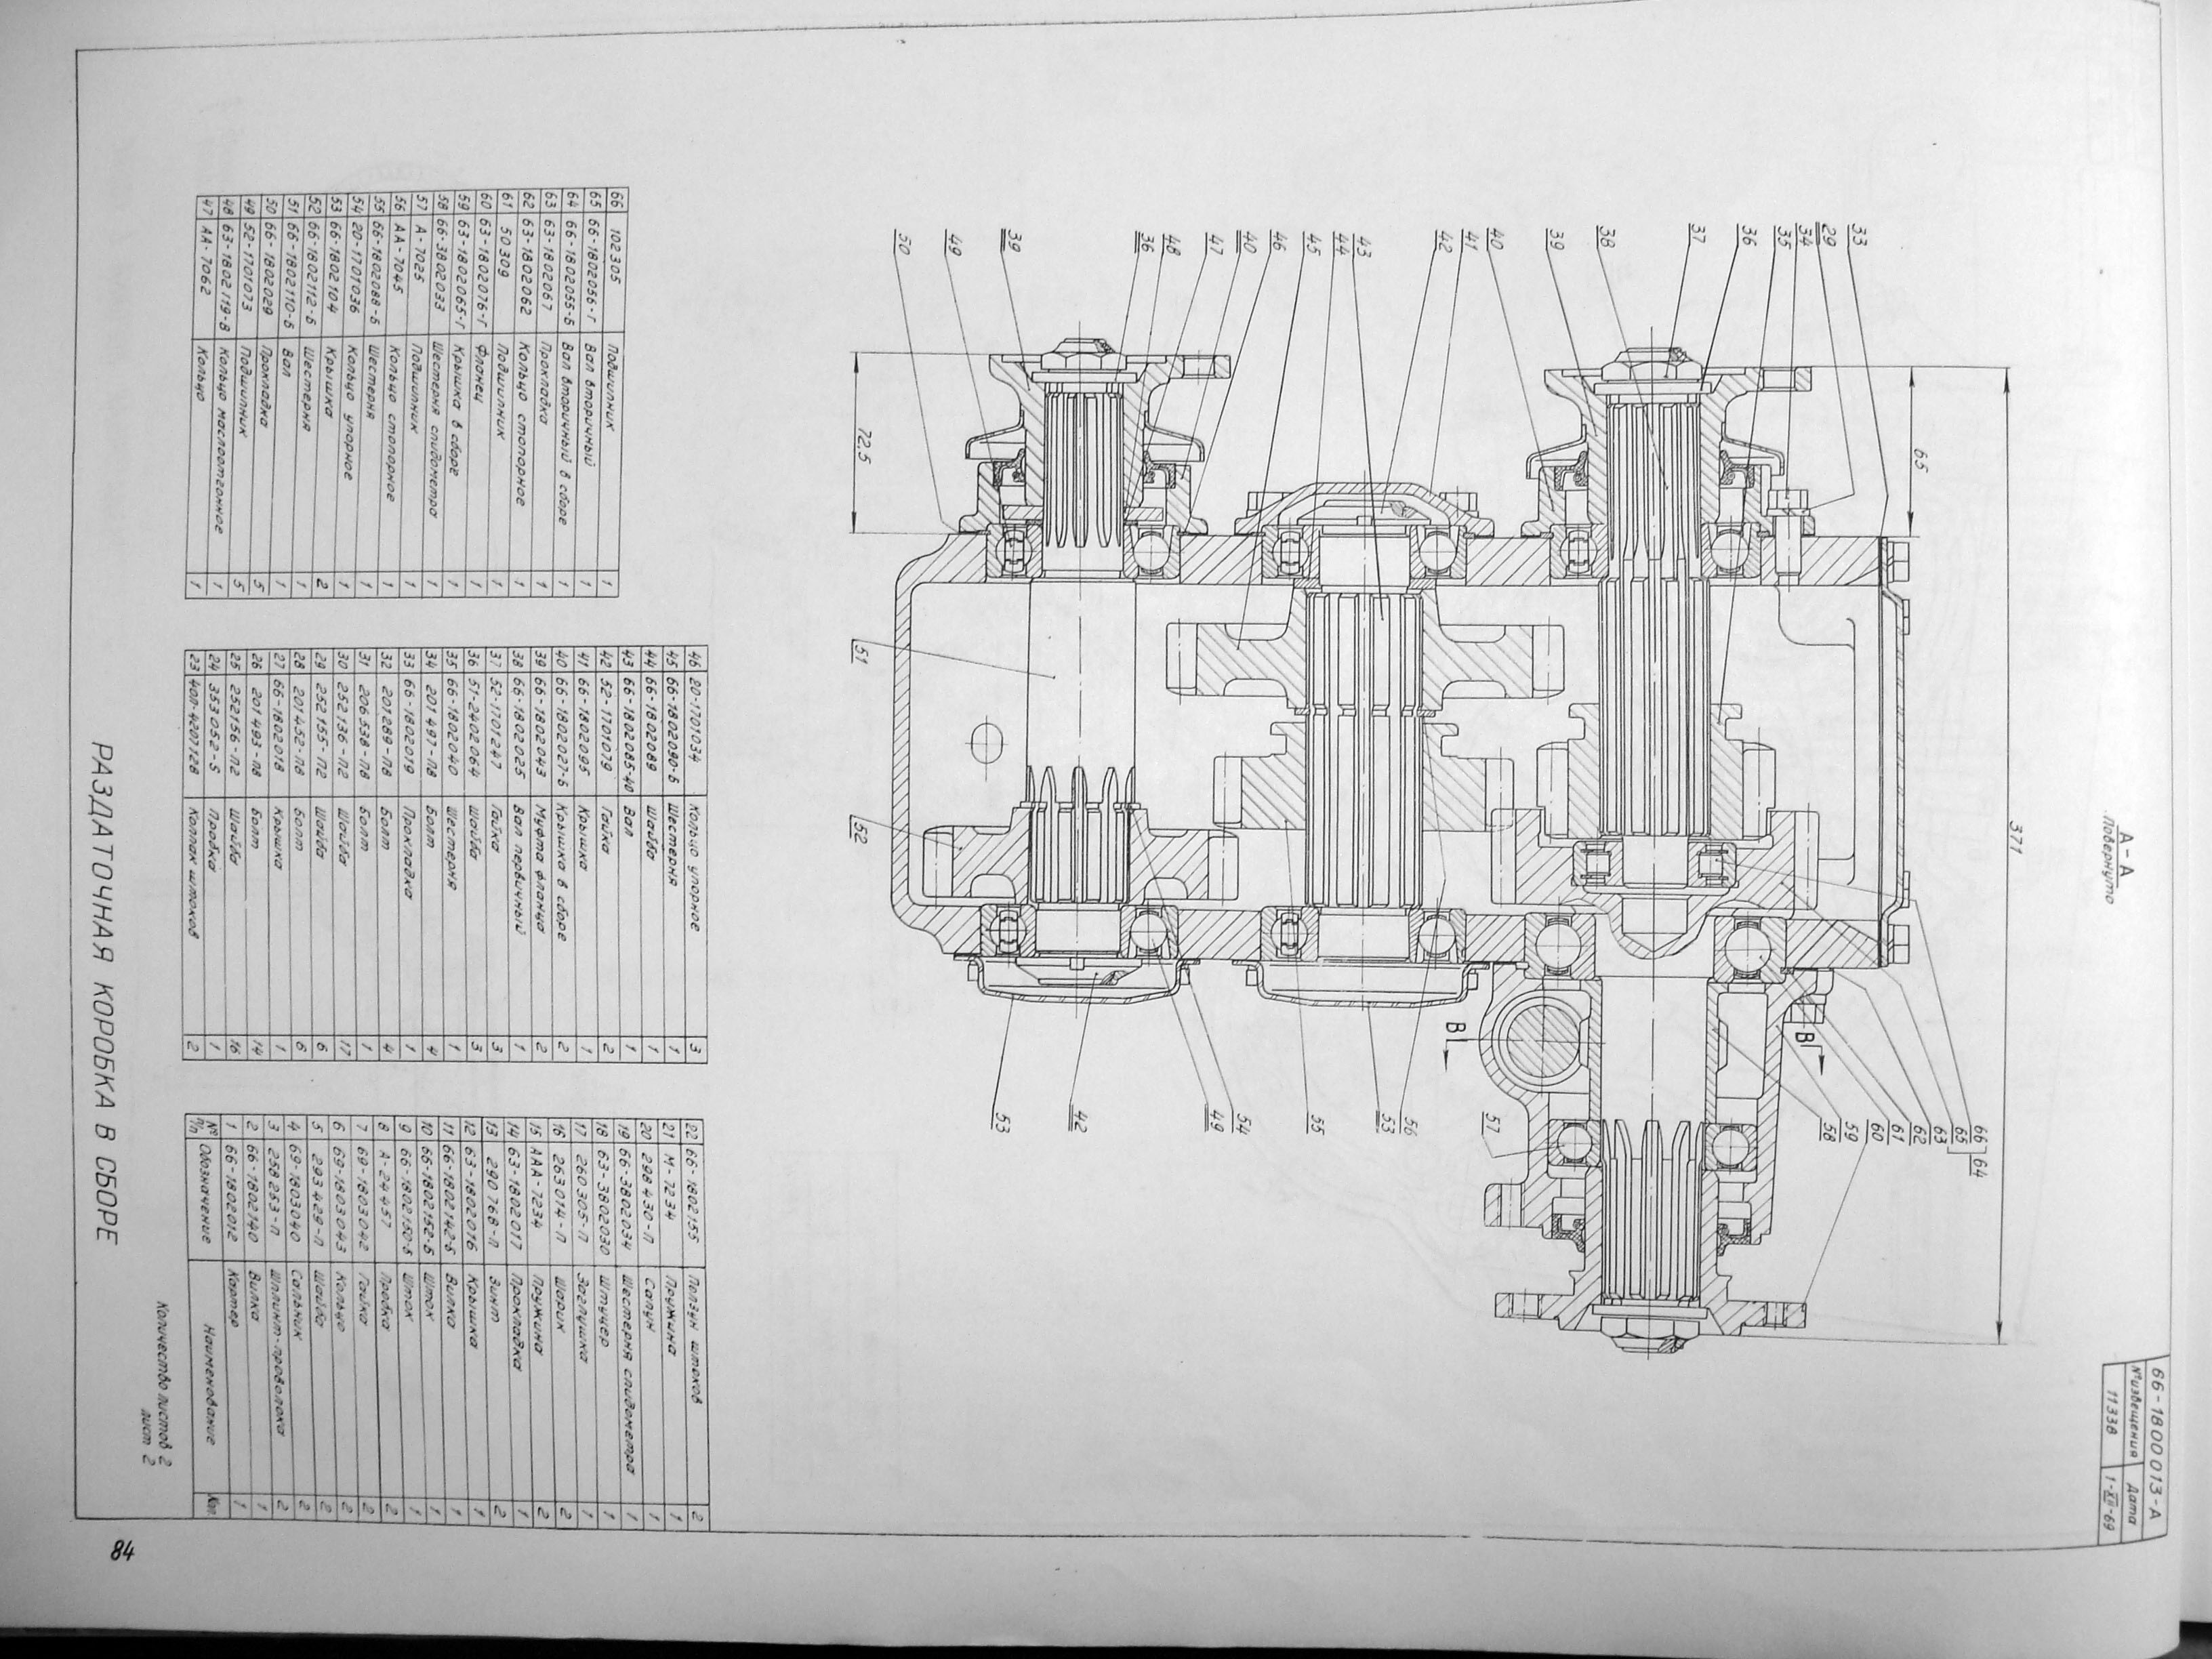 66-1800013-А
№ извещения Дата
11338 1-XII-69
А-А
Повернуто
371
65
72.5
В
В
33
29
34
35
36
37
38
39
40
41
42
43
44
45
46
40
47
48
36
39
49
50
51
52
53
42
49
54
55
53
56
57
58
59
60
61
62
63
65
66
64
66 102305 Подшипник 1
65 66-1802056-Г Вал вторичный 1
64 66-1802055-Б Вал вторичный в сборе 1
63 63-1802067 Прокладка 1
62 63-1802062 Кольцо стопорное 1
61 50309 Подшипник 1
60 63-1802076-Г Фланец 1
59 63-1802065-Г Крышка в сборе 1
58 66-3802033 Шестерня спидометра 1
57 А-7025 Подшипник 1
56 АА-7045 Кольцо стопорное 1
55 66-1802088-Б Шестерня 1
54 20-1701036 Кольцо упорное 1
53 66-1802104 Крышка 2
52 66-1802112-Б Шестерня 1
51 66-1802110-Б Вал 1
50 66-1802029 Прокладка 5
49 52-1701073 Подшипник 5
48 63-1802119-В Кольцо маслоотгонное 1
47 АА-7062 Кольцо 1
46 20-1701034 Кольцо упорное 3
45 66-1802090-Б Шестерня 1
44 66-1802089 Шайба 1
43 66-1802085-40 Вал 1
42 52-1701079 Гайка 2
41 66-1802095 Крышка 1
40 66-1802027-Б Крышка в сборе 2
39 66-1802043 Муфта фланца 2
38 66-1802025 Вал первичный 1
37 52-1701247 Гайка 3
36 51-2402064 Шайба 3
35 66-1802040 Шестерня 1
34 201497-П8 Болт 4
33 66-1802019 Прокладка 1
32 201289-П8 Болт 4
31 206538-П8 Болт 1
30 252136-П2 Шайба 17
29 252155-П2 Шайба 6
28 201452-П8 Болт 6
27 66-1802018 Крышка 1
26 201493-П8 Болт 14
25 252156-П2 Шайба 16
24 353052-S Пробка 1
23 40П-4207128 Колпак штоков 2
22 66-1802155 Ползун штоков 2
21 М-7234 Пружина 1
20 298430-П Сапун 1
19 66-3802034 Шестерня спидометра 1
18 63-3802030 Штуцер 1
17 260305-П Заглушка 1
16 263014-П Шарик 2
15 ААА-7234 Пружина 2
14 63-1802017 Прокладка 1
13 290768-П Винт 2
12 63-1802016 Крышка 1
11 66-1802142-Б Вилка 1
10 66-1802152-Б Шток 1
9 66-1802150-Б Шток 1
8 А-24457 Пробка 2
7 69-1803042 Гайка 2
6 69-1803043 Кольцо 2
5 293429-П Шайба 2
4 69-1803040 Сальник 2
3 258253-П Шплинт-проволока 2
2 66-1802140 Вилка 1
1 66-1802012 Картер 1
№ п/п Обозначение Наименование Кол.
РАЗДАТОЧНАЯ КОРОБКА В СБОРЕ
Количество листов 2
лист 2
84